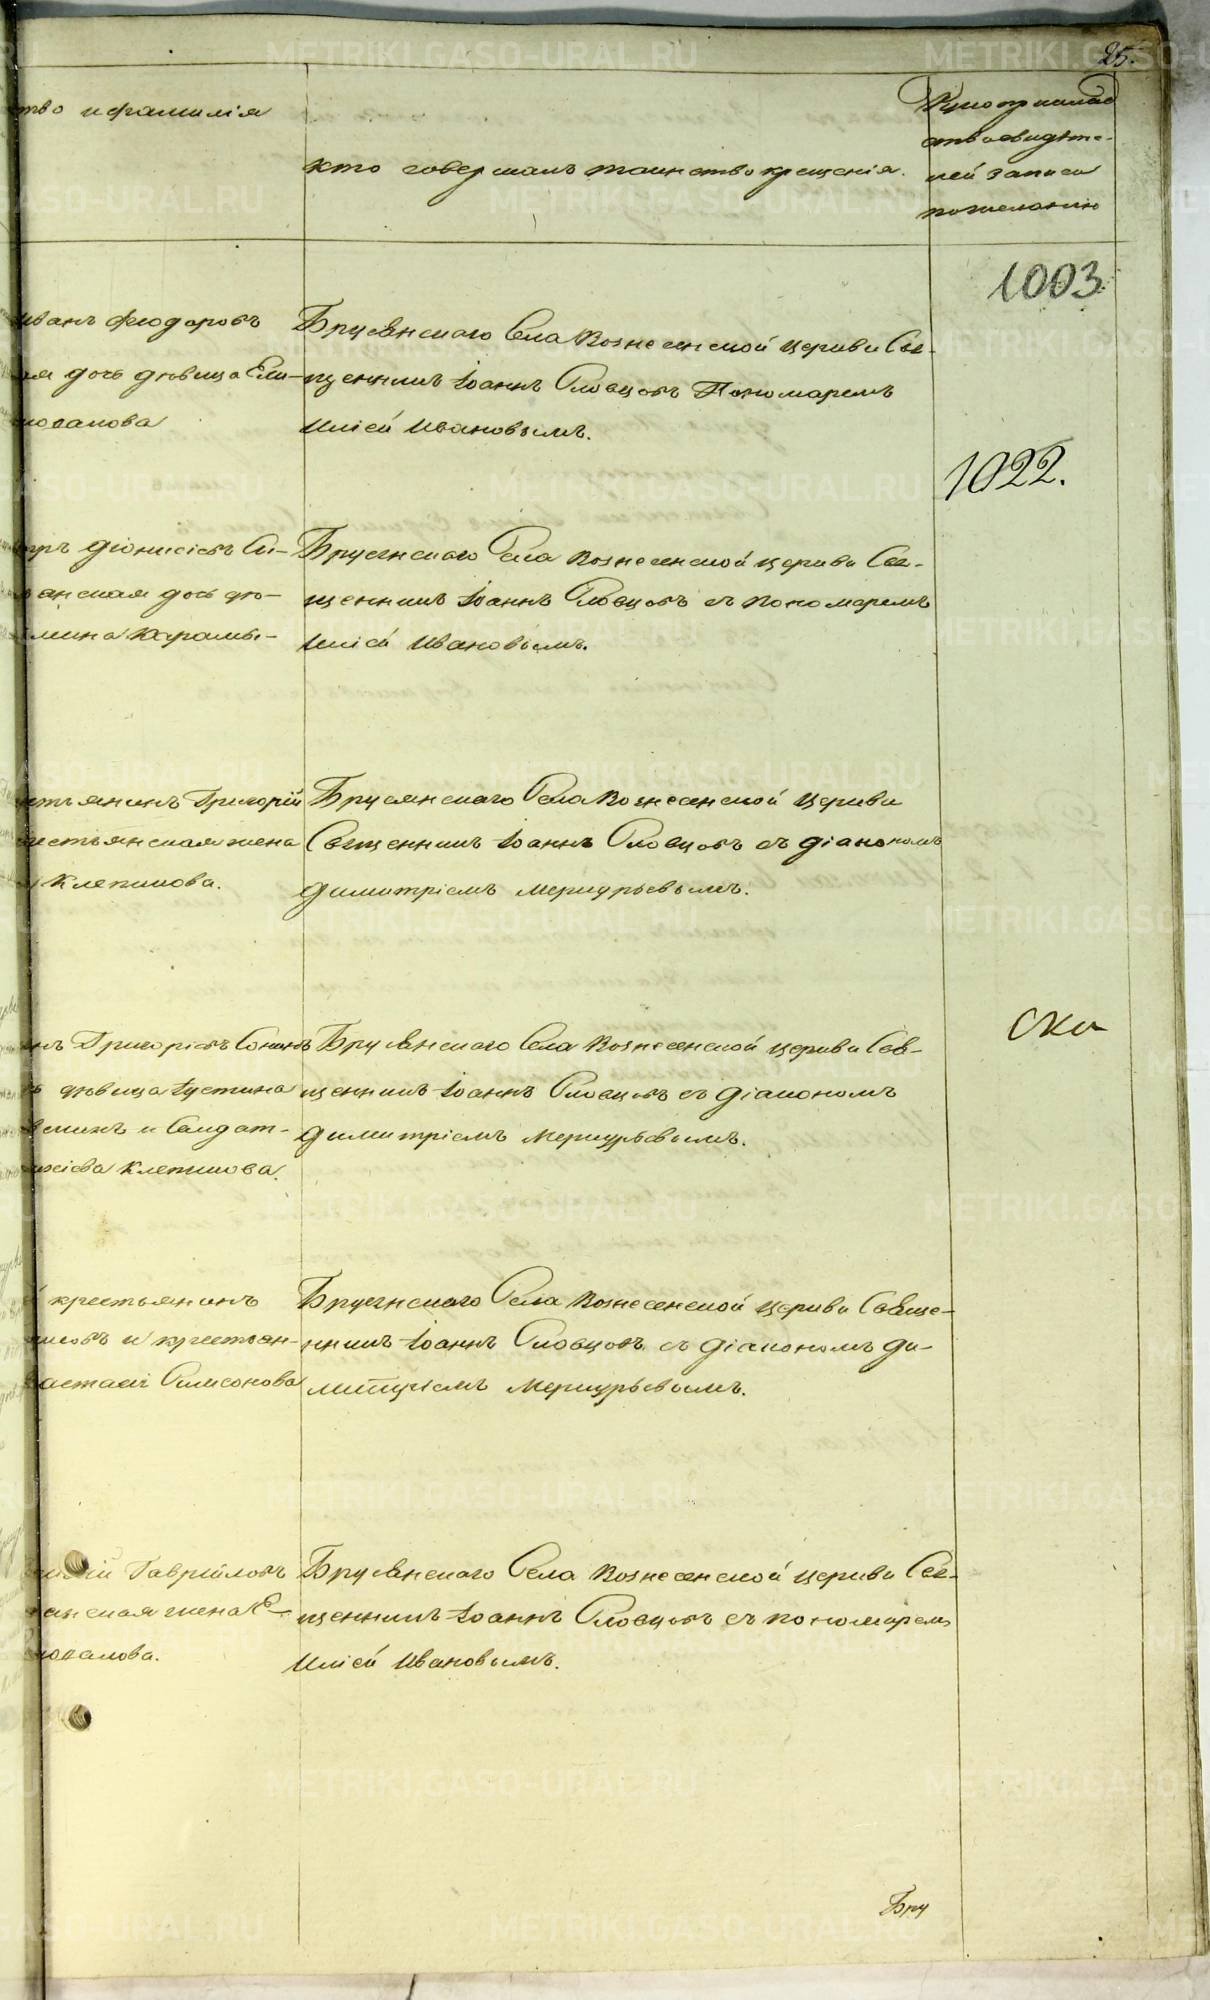 25.
тво и фамилія
кто совершалъ таинство крещенія.
Рукоприклад
ство свидѣте-
лей записи
по желанію
1003.
Иванъ Феодоровъ
ая дочь дѣвица Ели-
Брусянскаго Села Вознесенской церкви Свя-
щенникъ Іоаннъ Словцовъ Пономаремъ
Иліей Ивановымъ.
1022.
Діонисіевъ Си-
анская дочь дѣ-
Брусянскаго Села Вознесенской церкви Свя-
щенникъ Іоаннъ Словцовъ съ пономаремъ
Иліей Ивановымъ.
естьянинъ Григорій
рестьянская жена
Клепикова.
Брусянскаго Села Вознесенской церкви
Священникъ Іоаннъ Словцовъ съ діакономъ
Димитріемъ Меркурьевымъ.
нъ Григорьевъ Сонинъ
ь дѣвица Іустина
и Солдат-
Клепикова.
Брусянскаго Села Вознесенской церкви Свя-
щенникъ Іоаннъ Словцовъ съ діакономъ
Димитріемъ Меркурьевымъ.
ска
й крестьянинъ
и крестьян-
Самсонова
Брусянскаго Села Вознесенской церкви Свяще-
нникъ Іоаннъ Словцовъ съ діакономъ Ди-
митріемъ Меркурьевымъ.
Гавриловъ
анская жена Е-
Брусянскаго Села Вознесенской церкви Свя-
щенникъ Іоаннъ Словцовъ съ пономаремъ
Иліей Ивановымъ.
Бру
METRIKI.GASO-URAL.RU